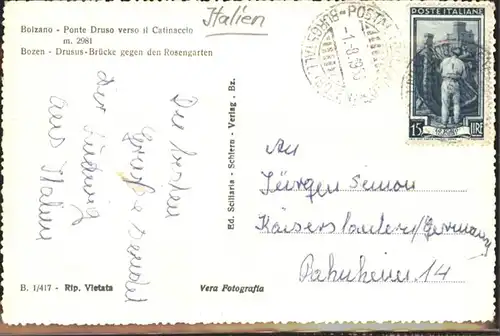 Italien
Bolzano - Ponte Druso verso il Catinaccio
m. 2981
Bozen - Drusus-Brücke gegen den Rosengarten
POSTE ITALIANE
15 LIRE
Die besten
Grüße sendet
dir
aus Italien
Ed. Scillaria - Schlern - Verlag. Bz.
An
Jürgen Simon
Kaiserslautern/Germany
14
B. 1/417 - Rip. Vietata
Vera Fotografia